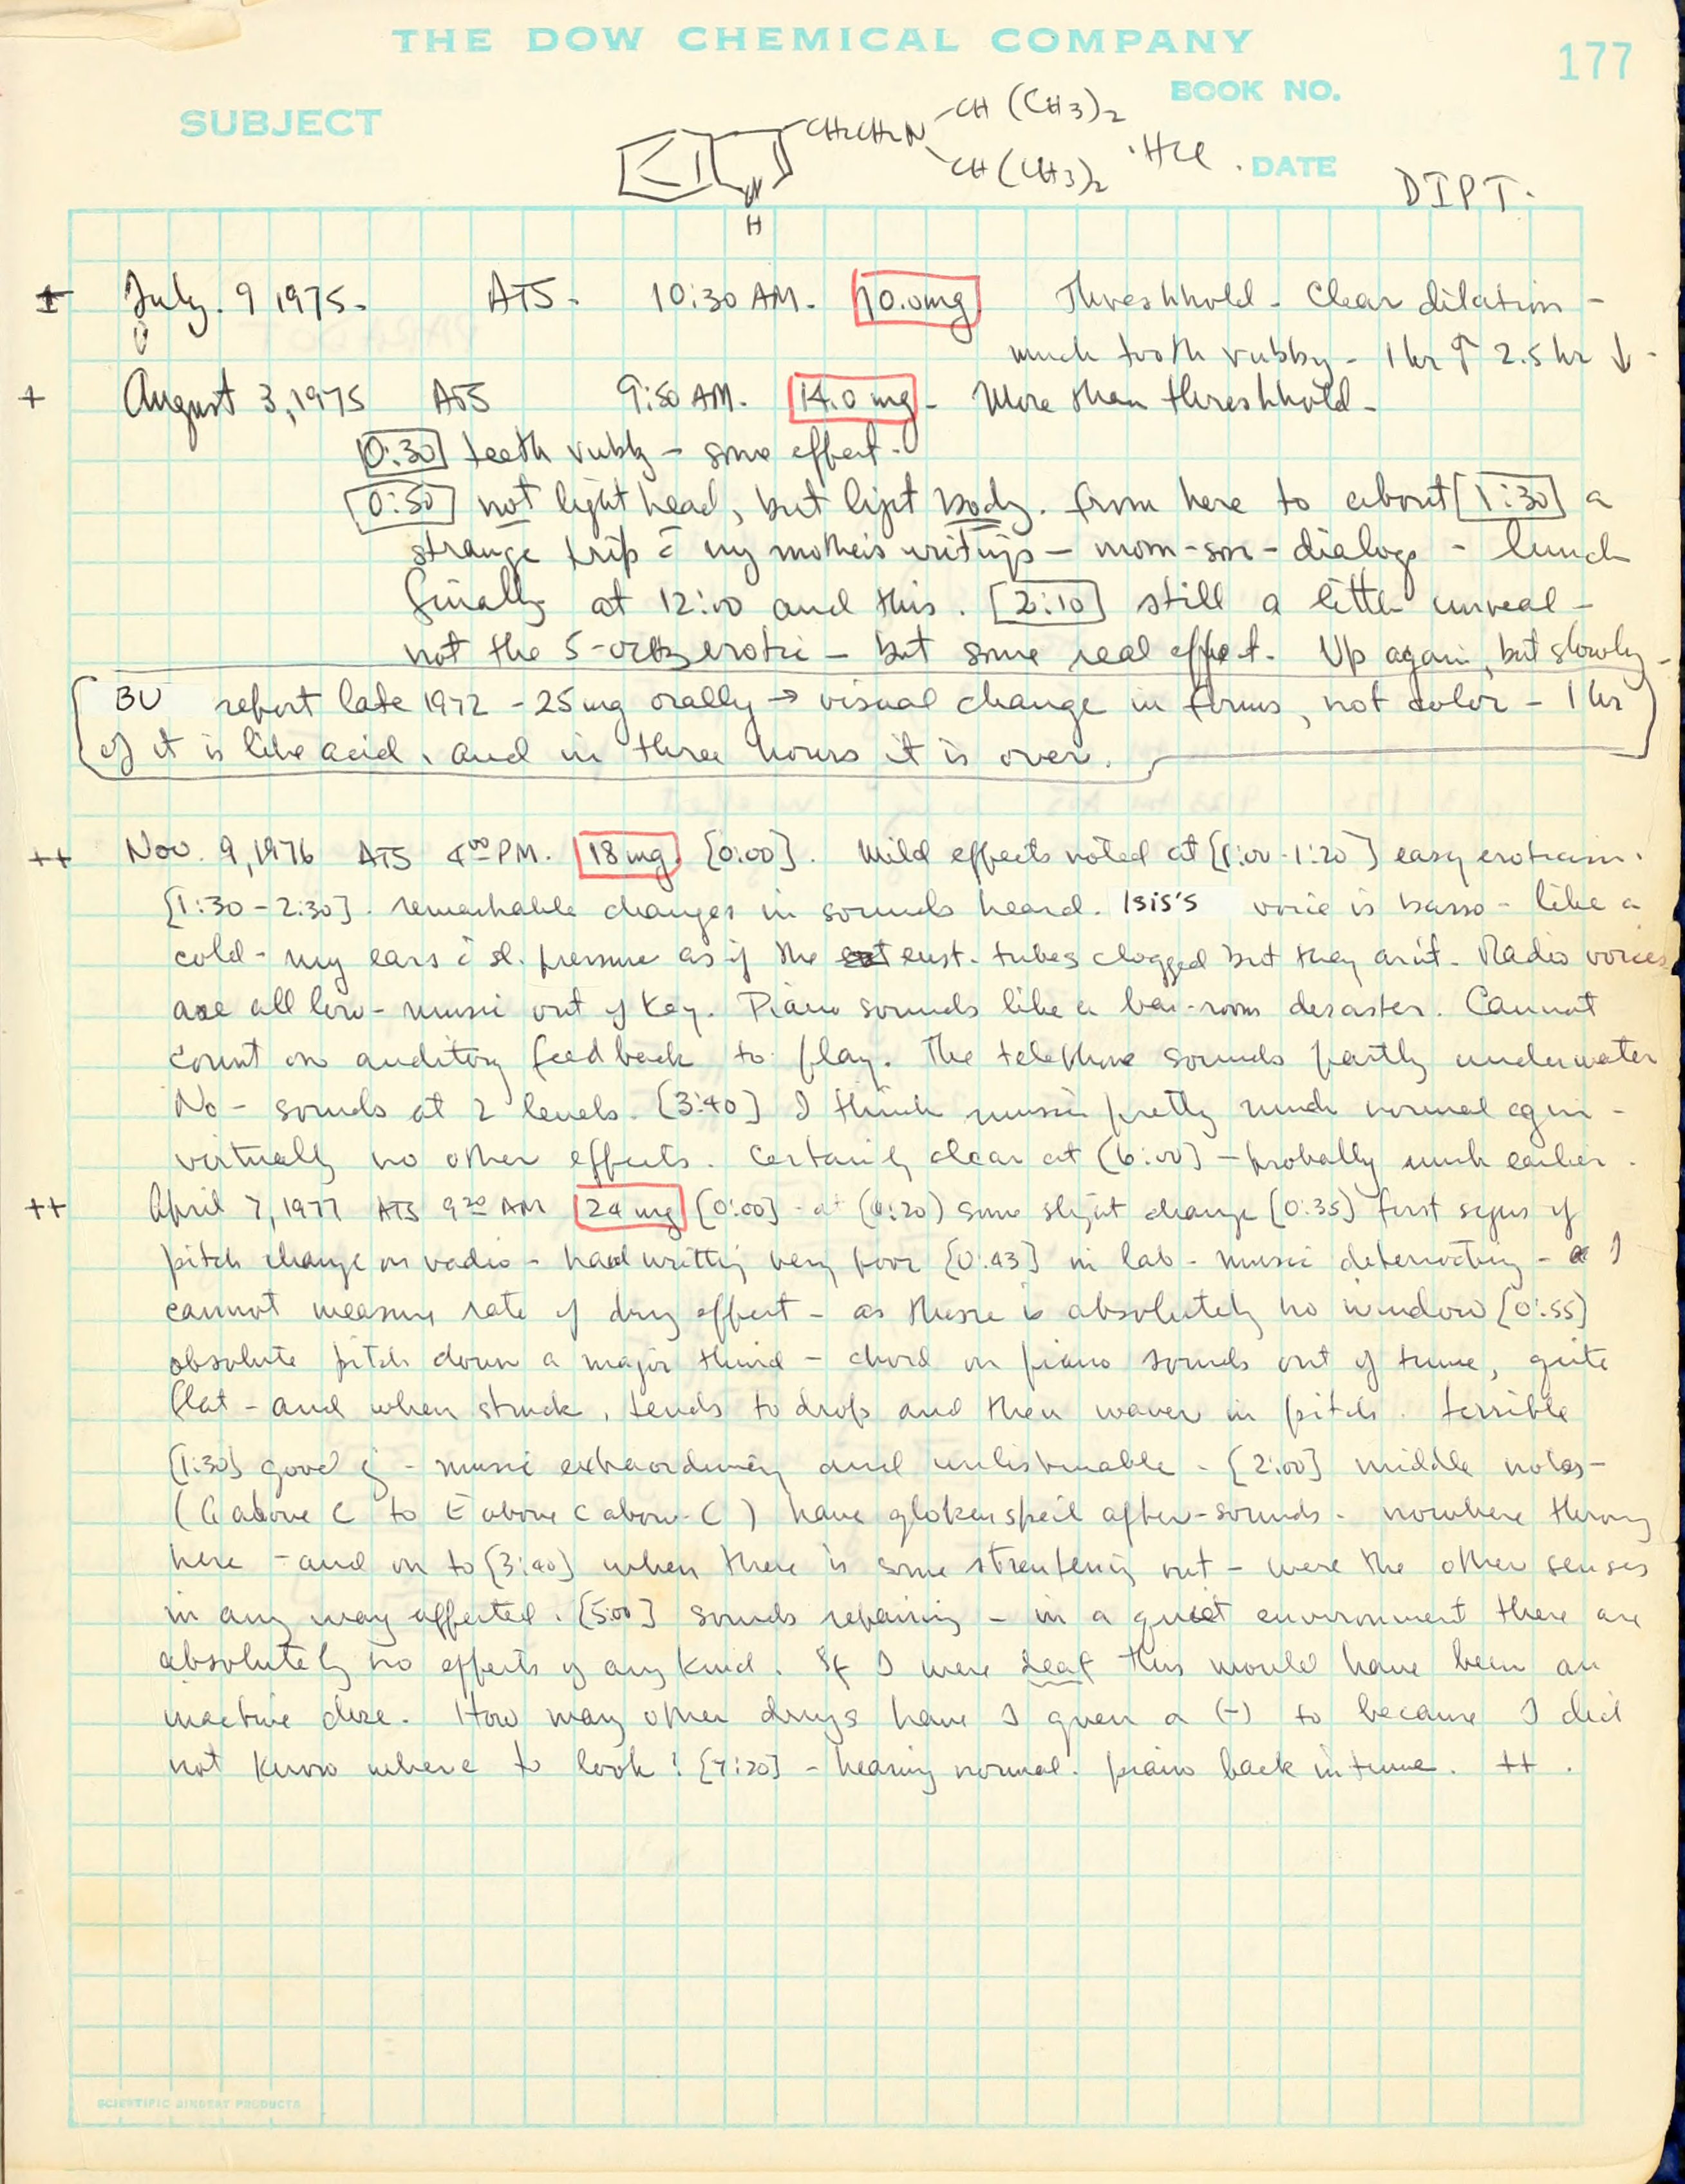 THE DOW CHEMICAL COMPANY
177
BOOK NO.
SUBJECT
CH2CH2N
CH (CH3)2
CH (CH3)2
·HCl
DATE
DIPT.
N
H
± July. 9 1975. ATS. 10:30 AM. 10.0mg Threshhold - Clear dilation -
much tooth rubby - 1 hr ↑ 2.5 hr ↓ -
+ August 3, 1975 ATS 9:50 AM. 14.0 mg - More than threshhold -
0:30 teeth rubby - some effect.
0:50 not light head, but light body. from here to about [1:30] a
strange trip c̄ my mother's writings - mom-son-dialogs - lunch
finally at 12:00 and this. [2:10] still a little unreal -
not the 5- erotic - but some real effect. Up again, but slowly -
BU report late 1972 - 25 mg orally → visual change in forms, not color - 1 hr
of it is like acid, and in three hours it is over.
++ Nov. 9, 1976 ATS 4 00 PM. 18 mg [0:00]. Mild effects noted at [1:00-1:20] easy eroticism.
[1:30-2:30]. remarkable changes in sounds heard. Isis's voice is basso - like a
cold - my ears c̄ sl. pressure as if the eust. tubes clogged but they arn't. Radio voices
are all low - music out of key. Piano sounds like a bar-room desaster. Cannot
count on auditory feedback to play. The telephone sounds partly underwater
No - sounds at 2 levels. [3:40] I think music pretty much normal again -
virtually no other effects. Certainly clear at [6:00] - probably much earlier.
++ April 7, 1977 ATS 9 20 AM 24 mg [0:00] - at (0:20) some slight change [0:35] first signs of
pitch change on radio - hand writting very poor [0:43] in lab - music deteriorating - I
cannot measure rate of drug effect - as there is absolutely no window [0:55]
absolute pitch down a major third - chord on piano sounds out of tune, quite
flat - and when struck, tends to drop and then waver in pitch. terrible
[1:30] good - music extraordinary and unlistenable - [2:00] middle notes -
(G above C to E above C above C) have glokenspeil after-sounds. nowhere throug
here - and on to [3:40] when there is some streutening out - were the other senses
in any way affected. [5:00] sounds repairing - in a quiet environment there are
absolutely no effects of any kind. If I were deaf this would have been an
inactive dose. How many other drugs have I given a (-) to because I did
not know where to look! [7:20] - hearing normal. piano back in tune. ++ .
SCIENTIFIC BINDERY PRODUCTS